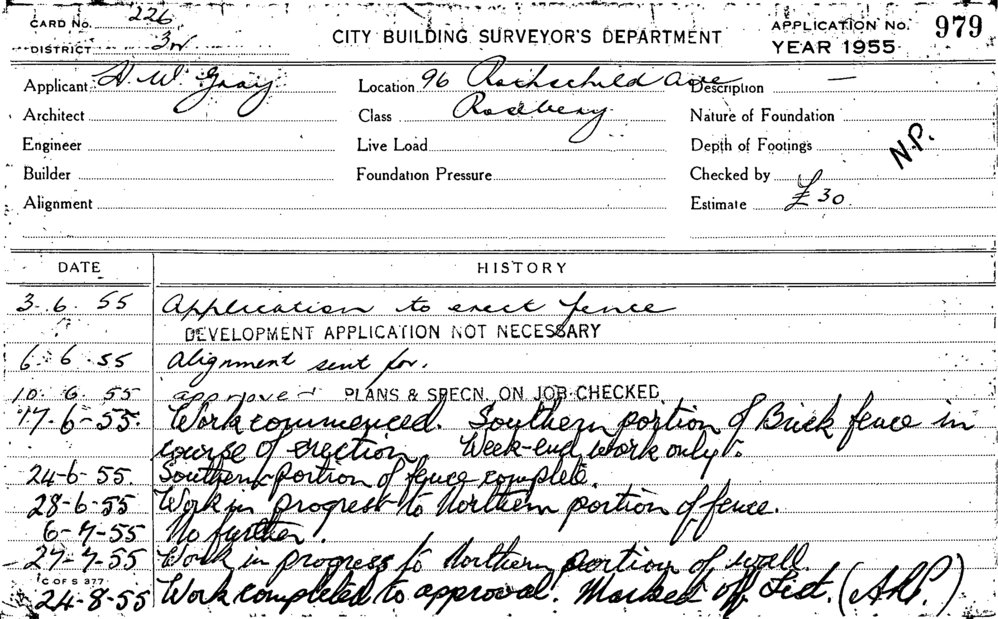 CARD No. 226
DISTRICT 3W
CITY BUILDING SURVEYOR'S DEPARTMENT
APPLICATION No. 979
YEAR 1955
Applicant H. W. Gray Location 96 Rothschild Ave Description —
Architect Class Rosebery Nature of Foundation
Engineer Live Load Depth of Footings
N.P.
Builder Foundation Pressure Checked by
Alignment Estimate £30
DATE HISTORY
3. 6. 55 Application to erect fence
DEVELOPMENT APPLICATION NOT NECESSARY
6. 6. 55 Alignment sent for.
10. 6. 55 approved PLANS & SPECN. ON JOB CHECKED
17-6-55. Work commenced. Southern portion of Brick fence in
course of erection Week-end work only.
24-6-55. Southern portion of fence complete.
28-6-55 Work in progress to Northern portion of fence.
6-7-55 No further.
27-7-55 Work in progress to Northern portion of wall.
C OF S 377
24-8-55 Work completed to approval. Marked off List.